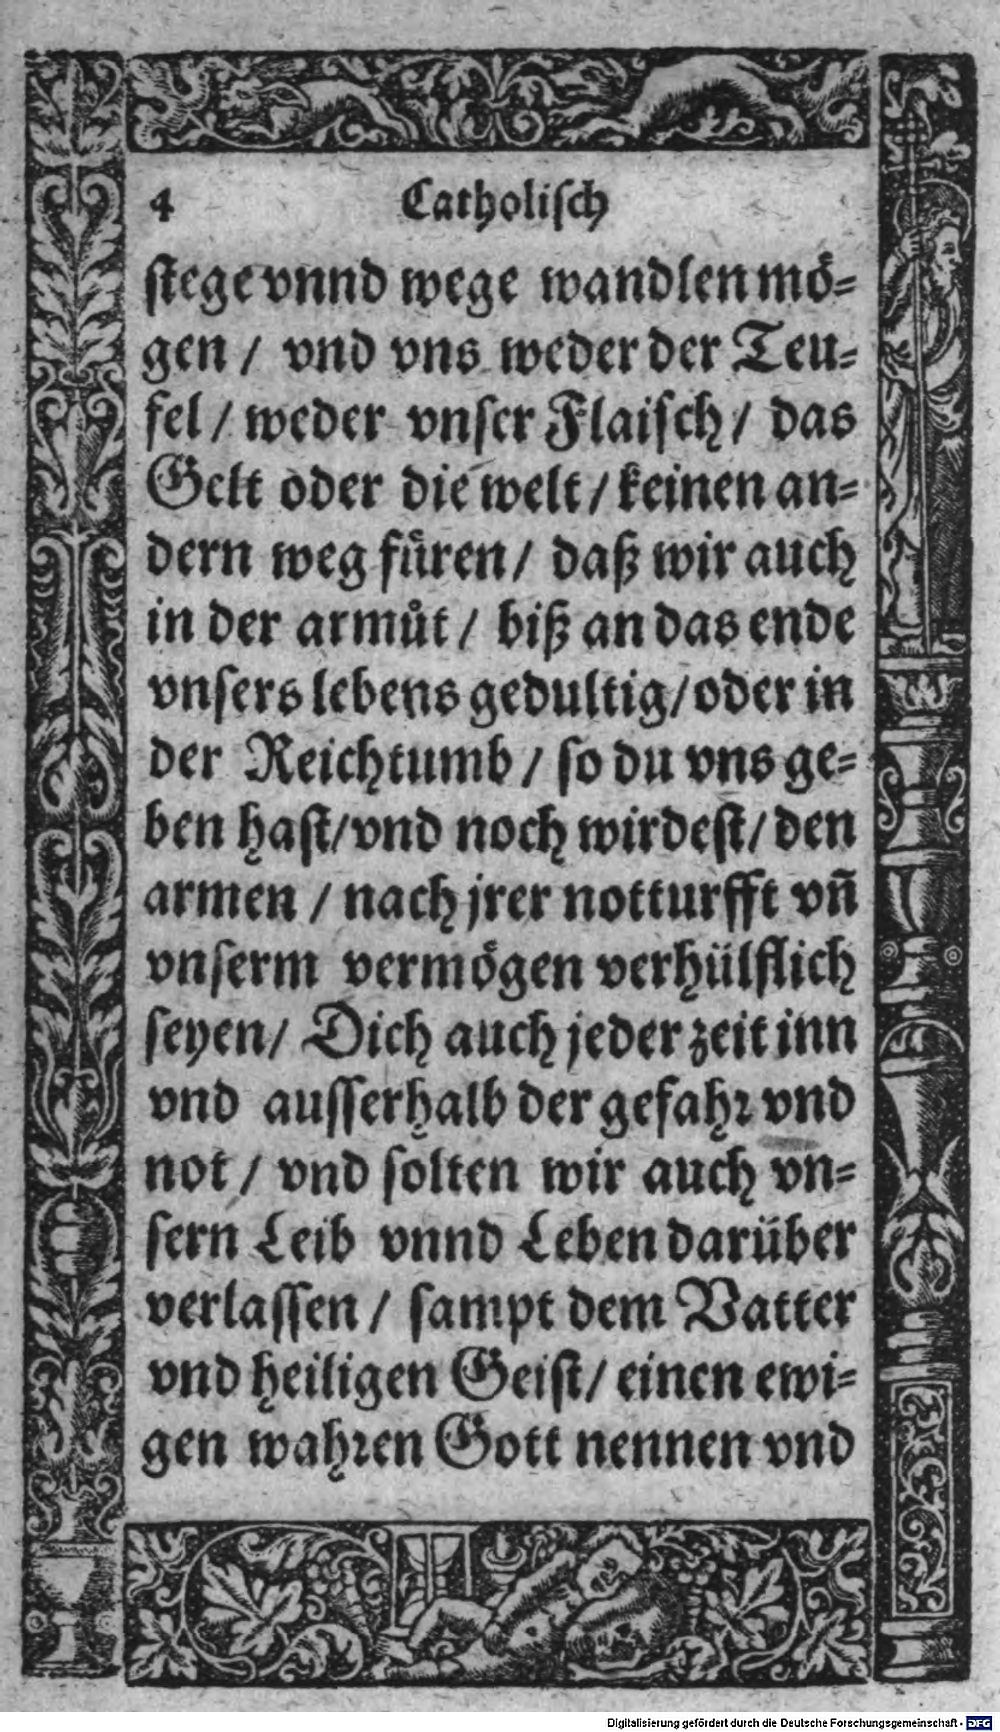 4 Catholiſch
ſtege vnnd wege wandlen moͤ⸗
gen / vnd vns weder der Teu⸗
fel / weder vnſer Flaiſch / das
Gelt oder die welt / keinen an⸗
dern weg fuͤren / daß wir auch
in der armuͦt / biß an das ende
vnſers lebens gedultig / oder in
der Reichtumb / ſo du vns ge⸗
ben haſt / vnd noch wirdeſt / den
armen / nach jrer notturfft vn̄
vnſerm vermoͤgen verhülflich
ſeyen / Dich auch jeder zeit inn
vnd auſſerhalb der gefahꝛ vnd
not / vnd ſolten wir auch vn⸗
ſern Leib vnnd Leben darüber
verlaſſen / ſampt dem Vatter
vnd heiligen Geiſt / einen ewi⸗
gen wahꝛen Gott nennen vnd
Digitalisierung gefördert durch die Deutsche Forschungsgemeinschaft - DFG